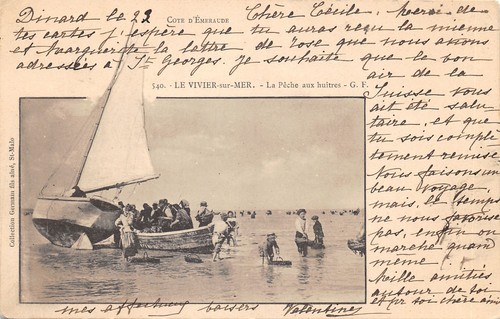 Dinard le 22
CÔTE D'ÉMERAUDE
Chère Cécile, Merci de
tes cartes j'espère que tu auras reçu la mienne
et Marguerite la lettre de Rose que nous avons
adressées à St Georges. je souhaite que le bon
540. - LE VIVIER-sur-MER. - La Pêche aux huîtres - G. F.
air de la
Suisse vous
ait été salu
taire, et que
tu sois complè
tement remise
Nous faisons un
beau voyage,
mais le temps
ne nous favorise
pas, enfin on
marche quand
même.
Mille amitiés
autour de toi
et pr toi chère amie
mes affectueux baisers
Valentine
Collection Germain fils aîné, St-Malo